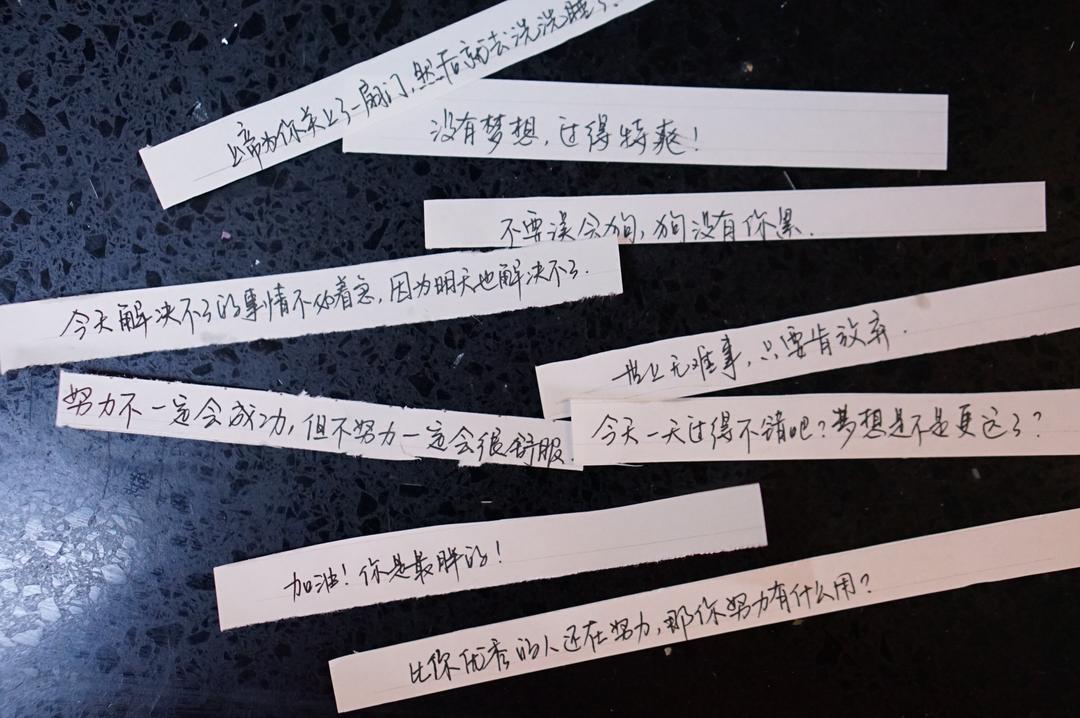 上帝为你关上了一扇门，然后就去洗洗睡了。
没有梦想，过得特爽！
不要误会狗，狗没有你累．
今天解决不了的事情不必着急，因为明天也解决不了．
世上无难事，只要肯放弃．
努力不一定会成功，但不努力一定会很舒服．
今天一天过得不错吧？梦想是不是更远了？
加油！你是最胖的！
比你优秀的人还在努力，那你努力有什么用？